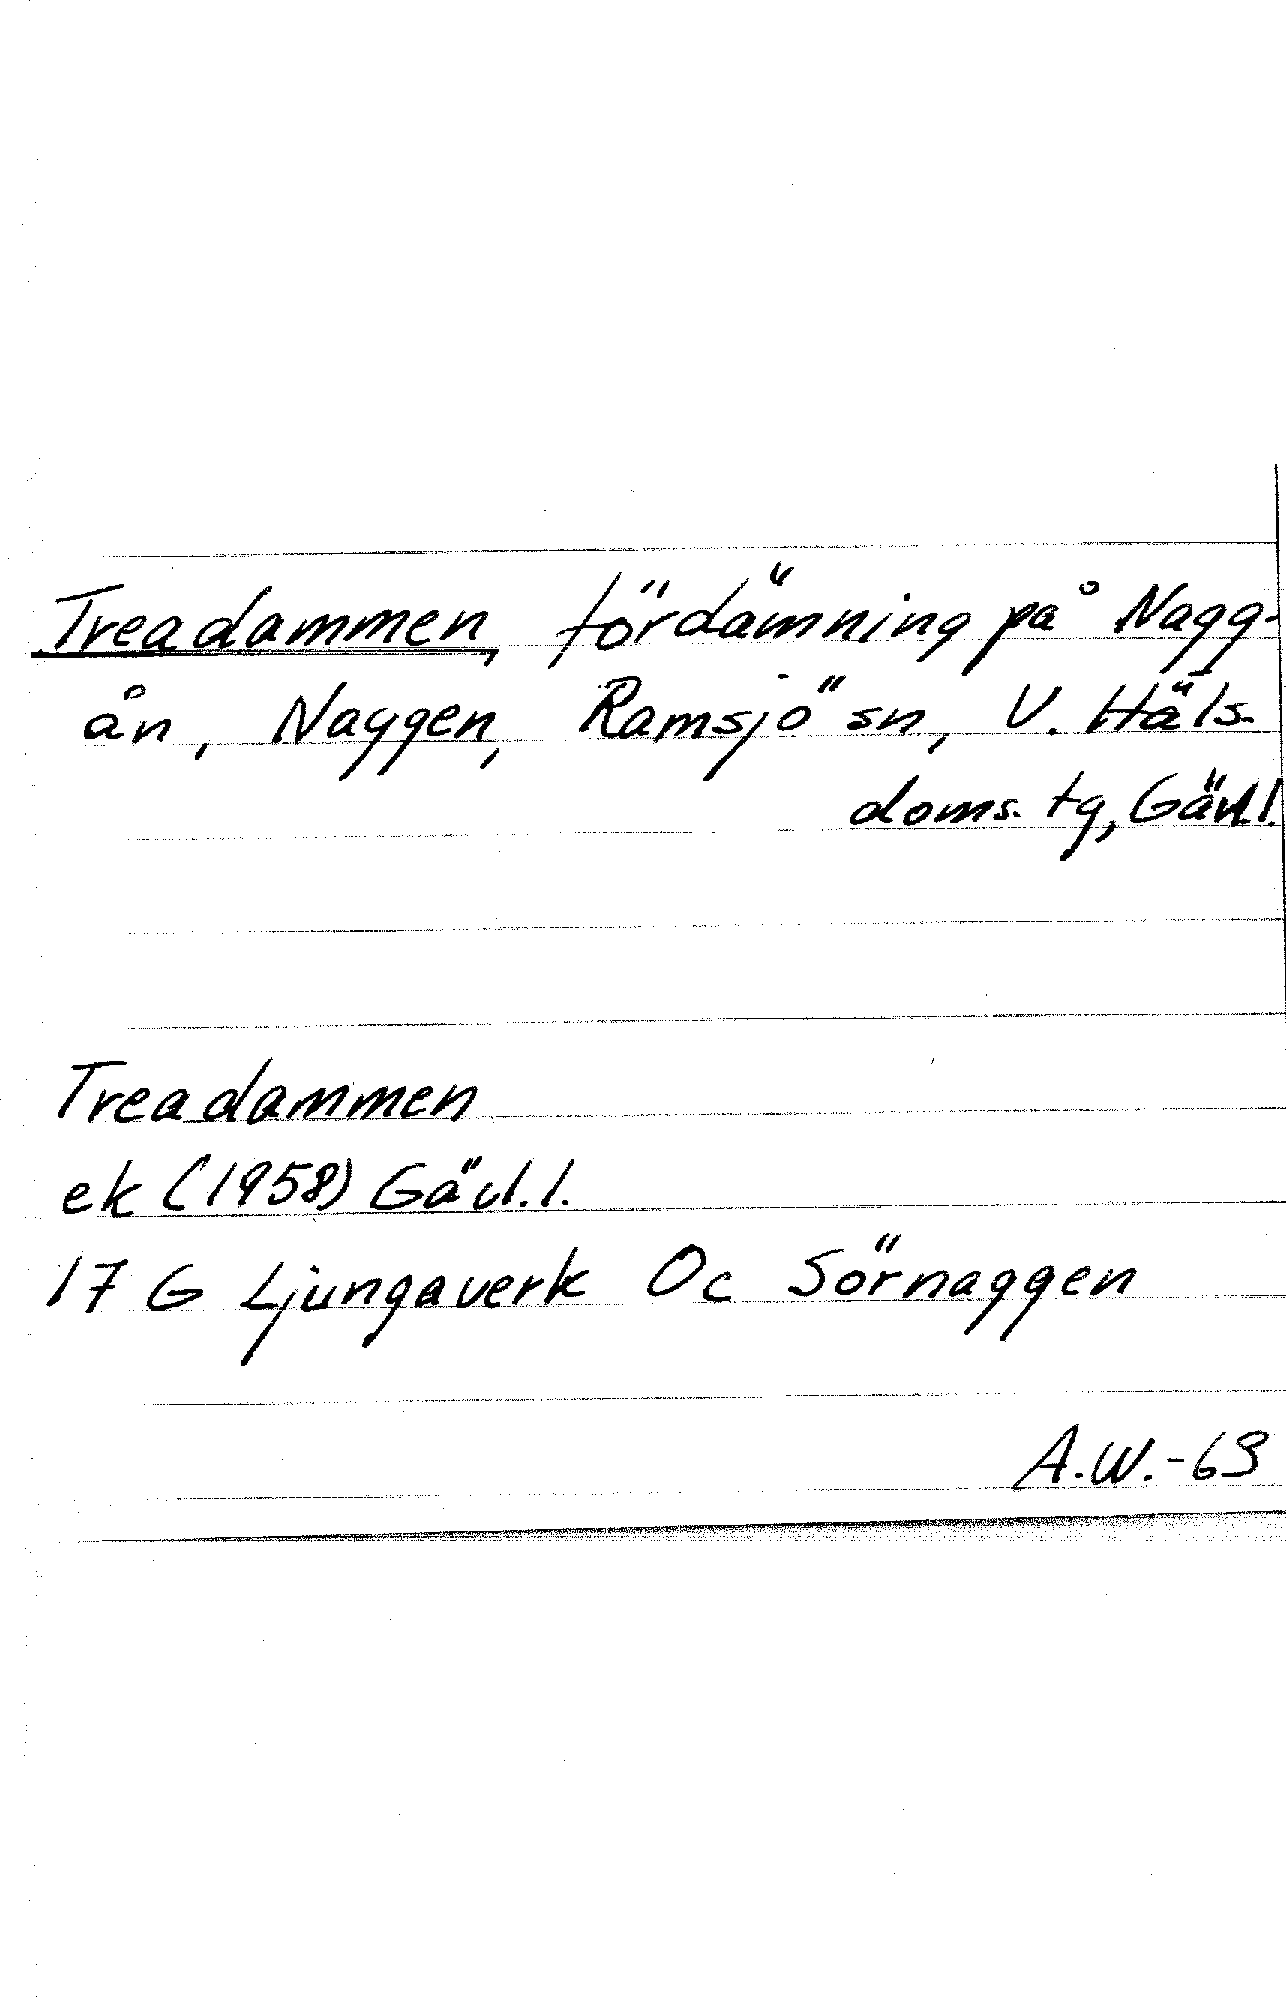 Treadammen, fördämning på Nagg-
ån, Naggen, Ramsjö sn, V. Häls.
doms. tg, Gävl.l.
Treadammen
ek (1958) Gävl.l.
17 G Ljungaverk Oc Sörnaggen
A.W.-69